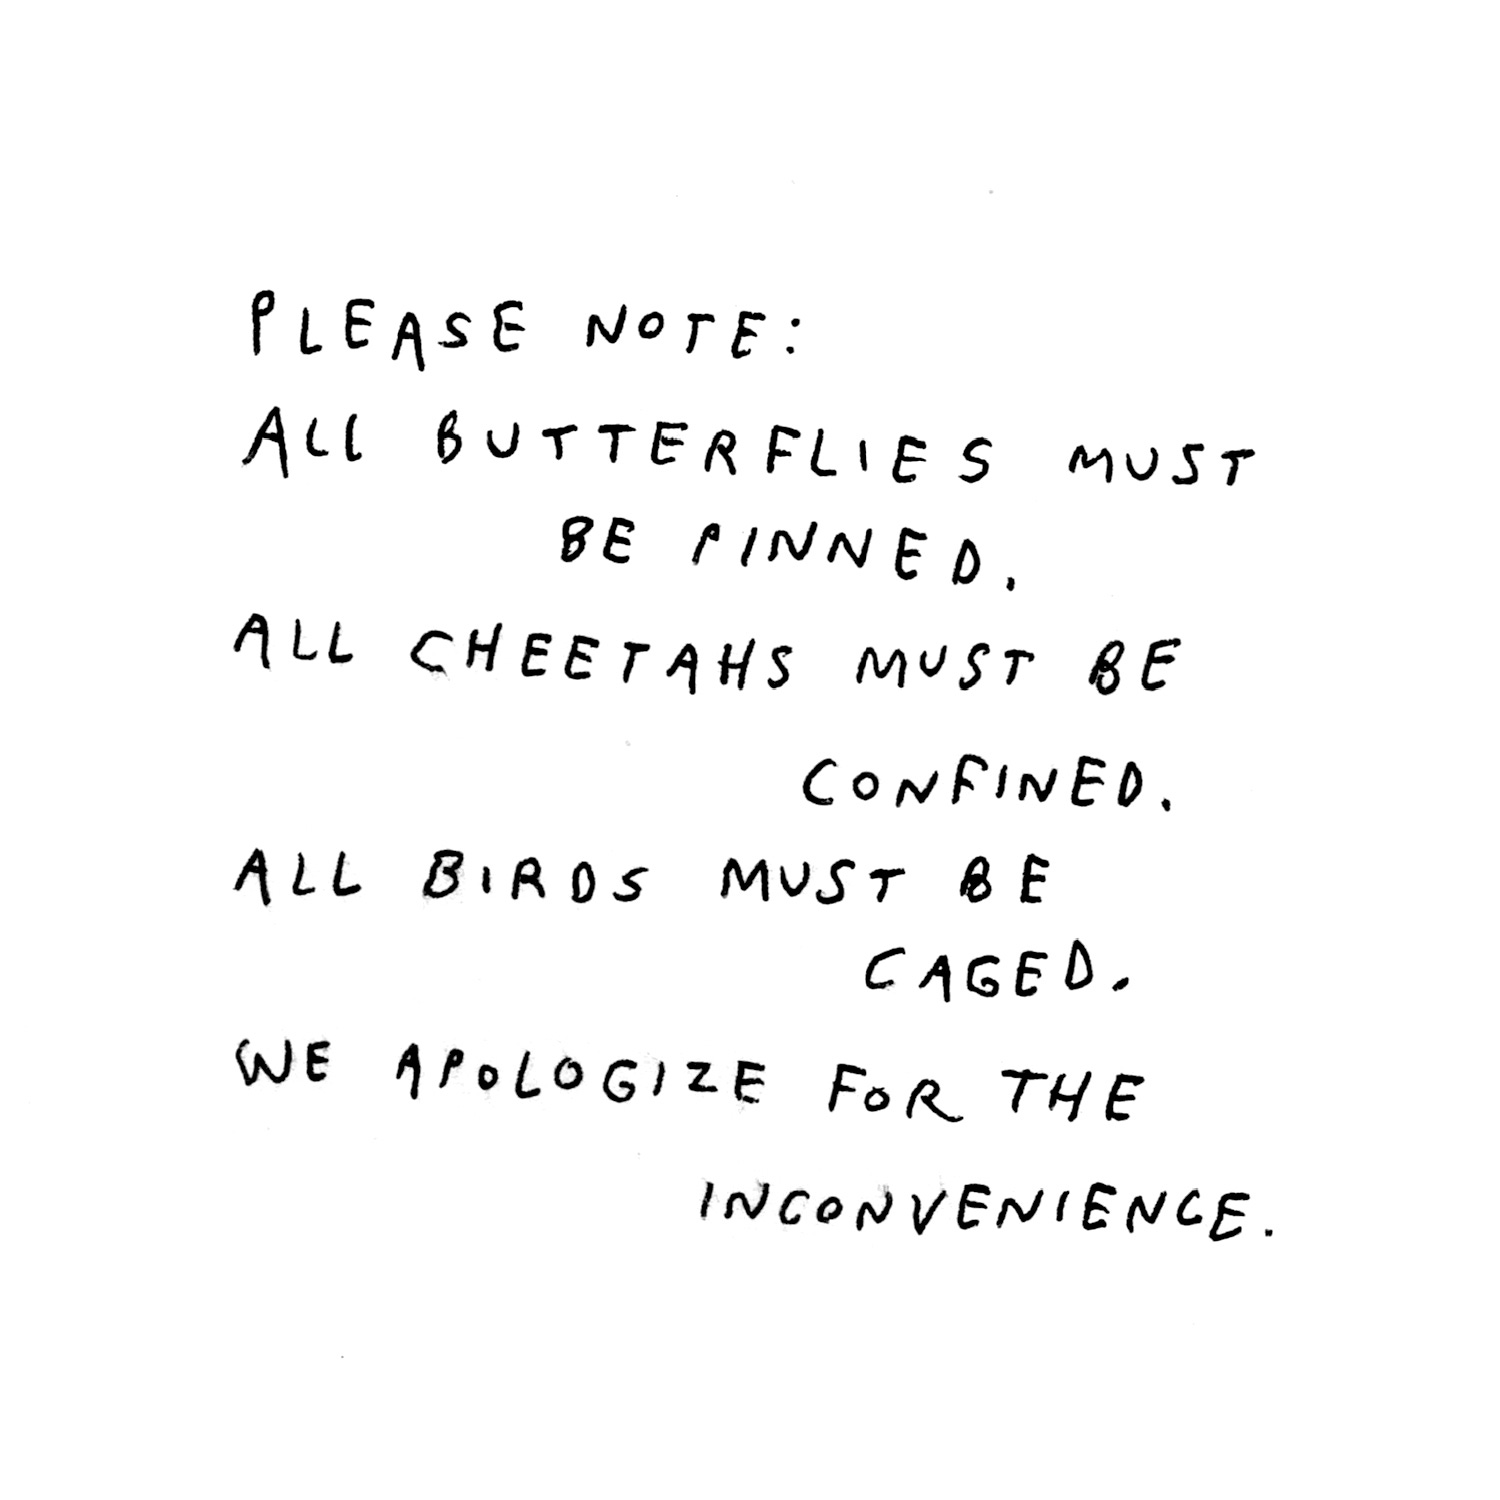 PLEASE NOTE:
ALL BUTTERFLIES MUST
BE PINNED.
ALL CHEETAHS MUST BE
CONFINED.
ALL BIRDS MUST BE
CAGED.
WE APOLOGIZE FOR THE
INCONVENIENCE.